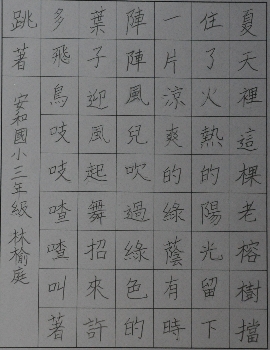 夏天裡這棵老榕樹擋
住了火熱的陽光留下
一片涼爽的綠蔭有時
陣陣風兒吹過綠色的
葉子迎風起舞招來許
多飛鳥吱吱喳喳叫著
跳著
安和國小三年級 林榆庭